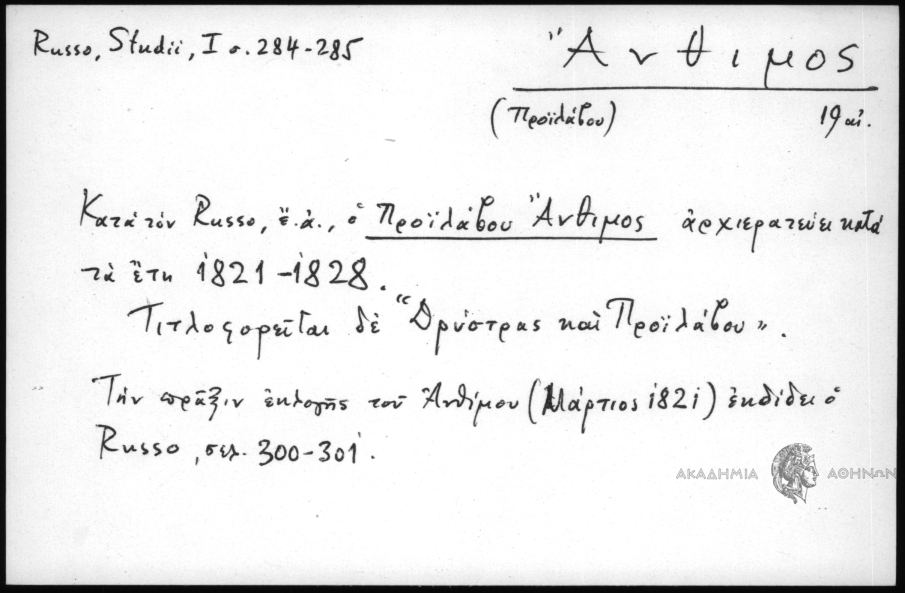 Russo, Studii, I σ. 284-285
Ἄνθιμος
(Προϊλάβου) 19 αἰ.
Κατὰ τὸν Russo, ἔ.ἀ., ὁ Προϊλάβου Ἄνθιμος ἀρχιερατεύει κατὰ
τὰ ἔτη 1821-1828.
Τιτλοφορεῖται δὲ "Δρύστρας καὶ Προϊλάβου".
Τὴν πρᾶξιν ἐκλογῆς τοῦ Ἀνθίμου (Μάρτιος 1821) ἐκδίδει ὁ
Russo, σελ. 300-301.
ΑΚΑΔΗΜΙΑ ΑΘΗΝΩΝ